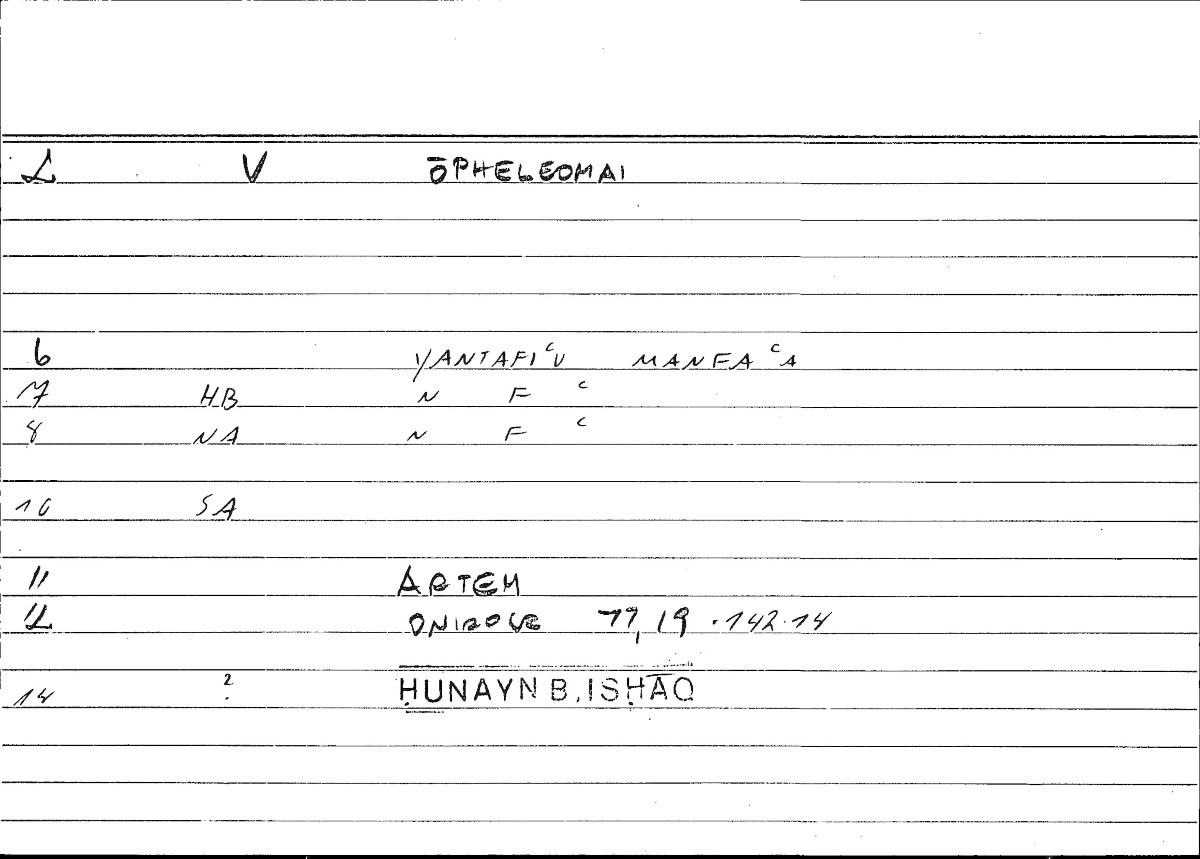 2 V ŌPHELEOMAI
6 YANTAFIᶜU MANFAᶜA
7 HB N F ᶜ
8 NA N F ᶜ
10 SA
11 ARTEM
12 ONIROCR 77,19 · 142.14
14 ? ḤUNAYN B. ISḤĀQ